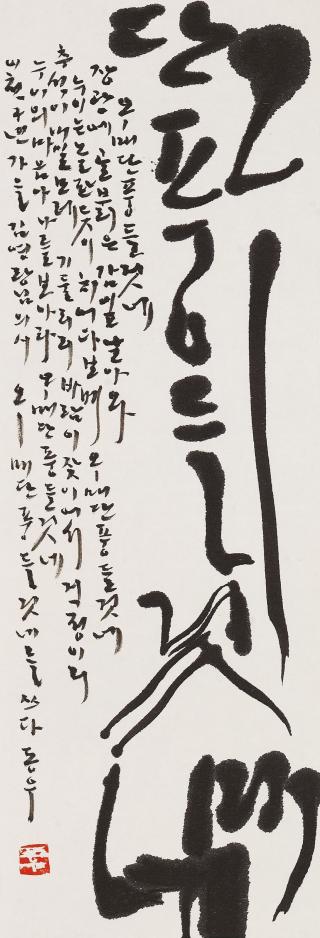 오ㅣ매
단풍 들것네
오ㅣ매 단풍 들것네
장광에 골붉은 감잎은 날아와
누이는 놀란듯이 치어다보며 오ㅣ매 단풍 들것네
추석이 내일모레 기둘리리 바람이 잦이어서 걱정이리
누이의 마음아 나를 보아라 오ㅣ매 단풍 들것네
이천구년 가을 김영랑님의 시 오ㅣ매 단풍 들것네를 쓰다 돈우